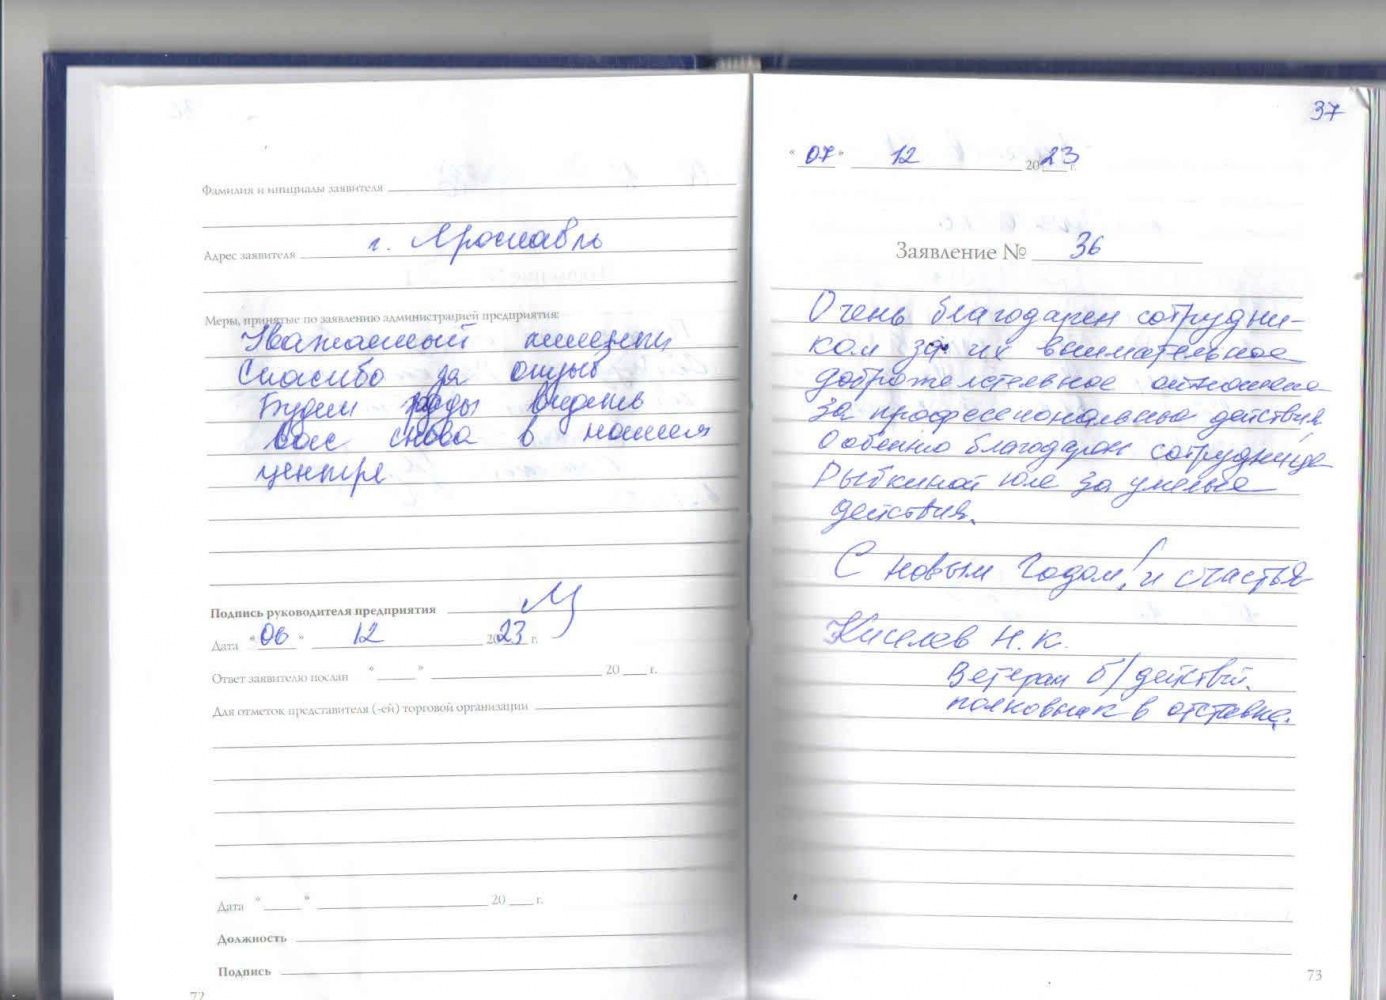 Фамилия и инициалы заявителя
г. Ярославль
Адрес заявителя
Меры, принятые по заявлению администрацией предприятия:
Уважаемый клиент
Спасибо за отзыв
Будем рады видеть
вас снова в нашем
центре
Подпись руководителя предприятия
Дата "06" 12 2023 г.
Ответ заявителю послан " " 20 г.
Для отметок представителя (-ей) торговой организации
Дата " " 20 г.
Должность
Подпись
72
37
"07" 12 2023 г.
Заявление № 36
Очень благодарен сотрудни-
кам за их внимательное
доброжелательное отношение
за профессиональные действия
Особенно благодарен сотруднице
Рыбкиной Юле за умелые
действия.
С новым Годом! и счастья
Киселев Н.К.
Ветеран б/действий.
полковник в отставке.
73